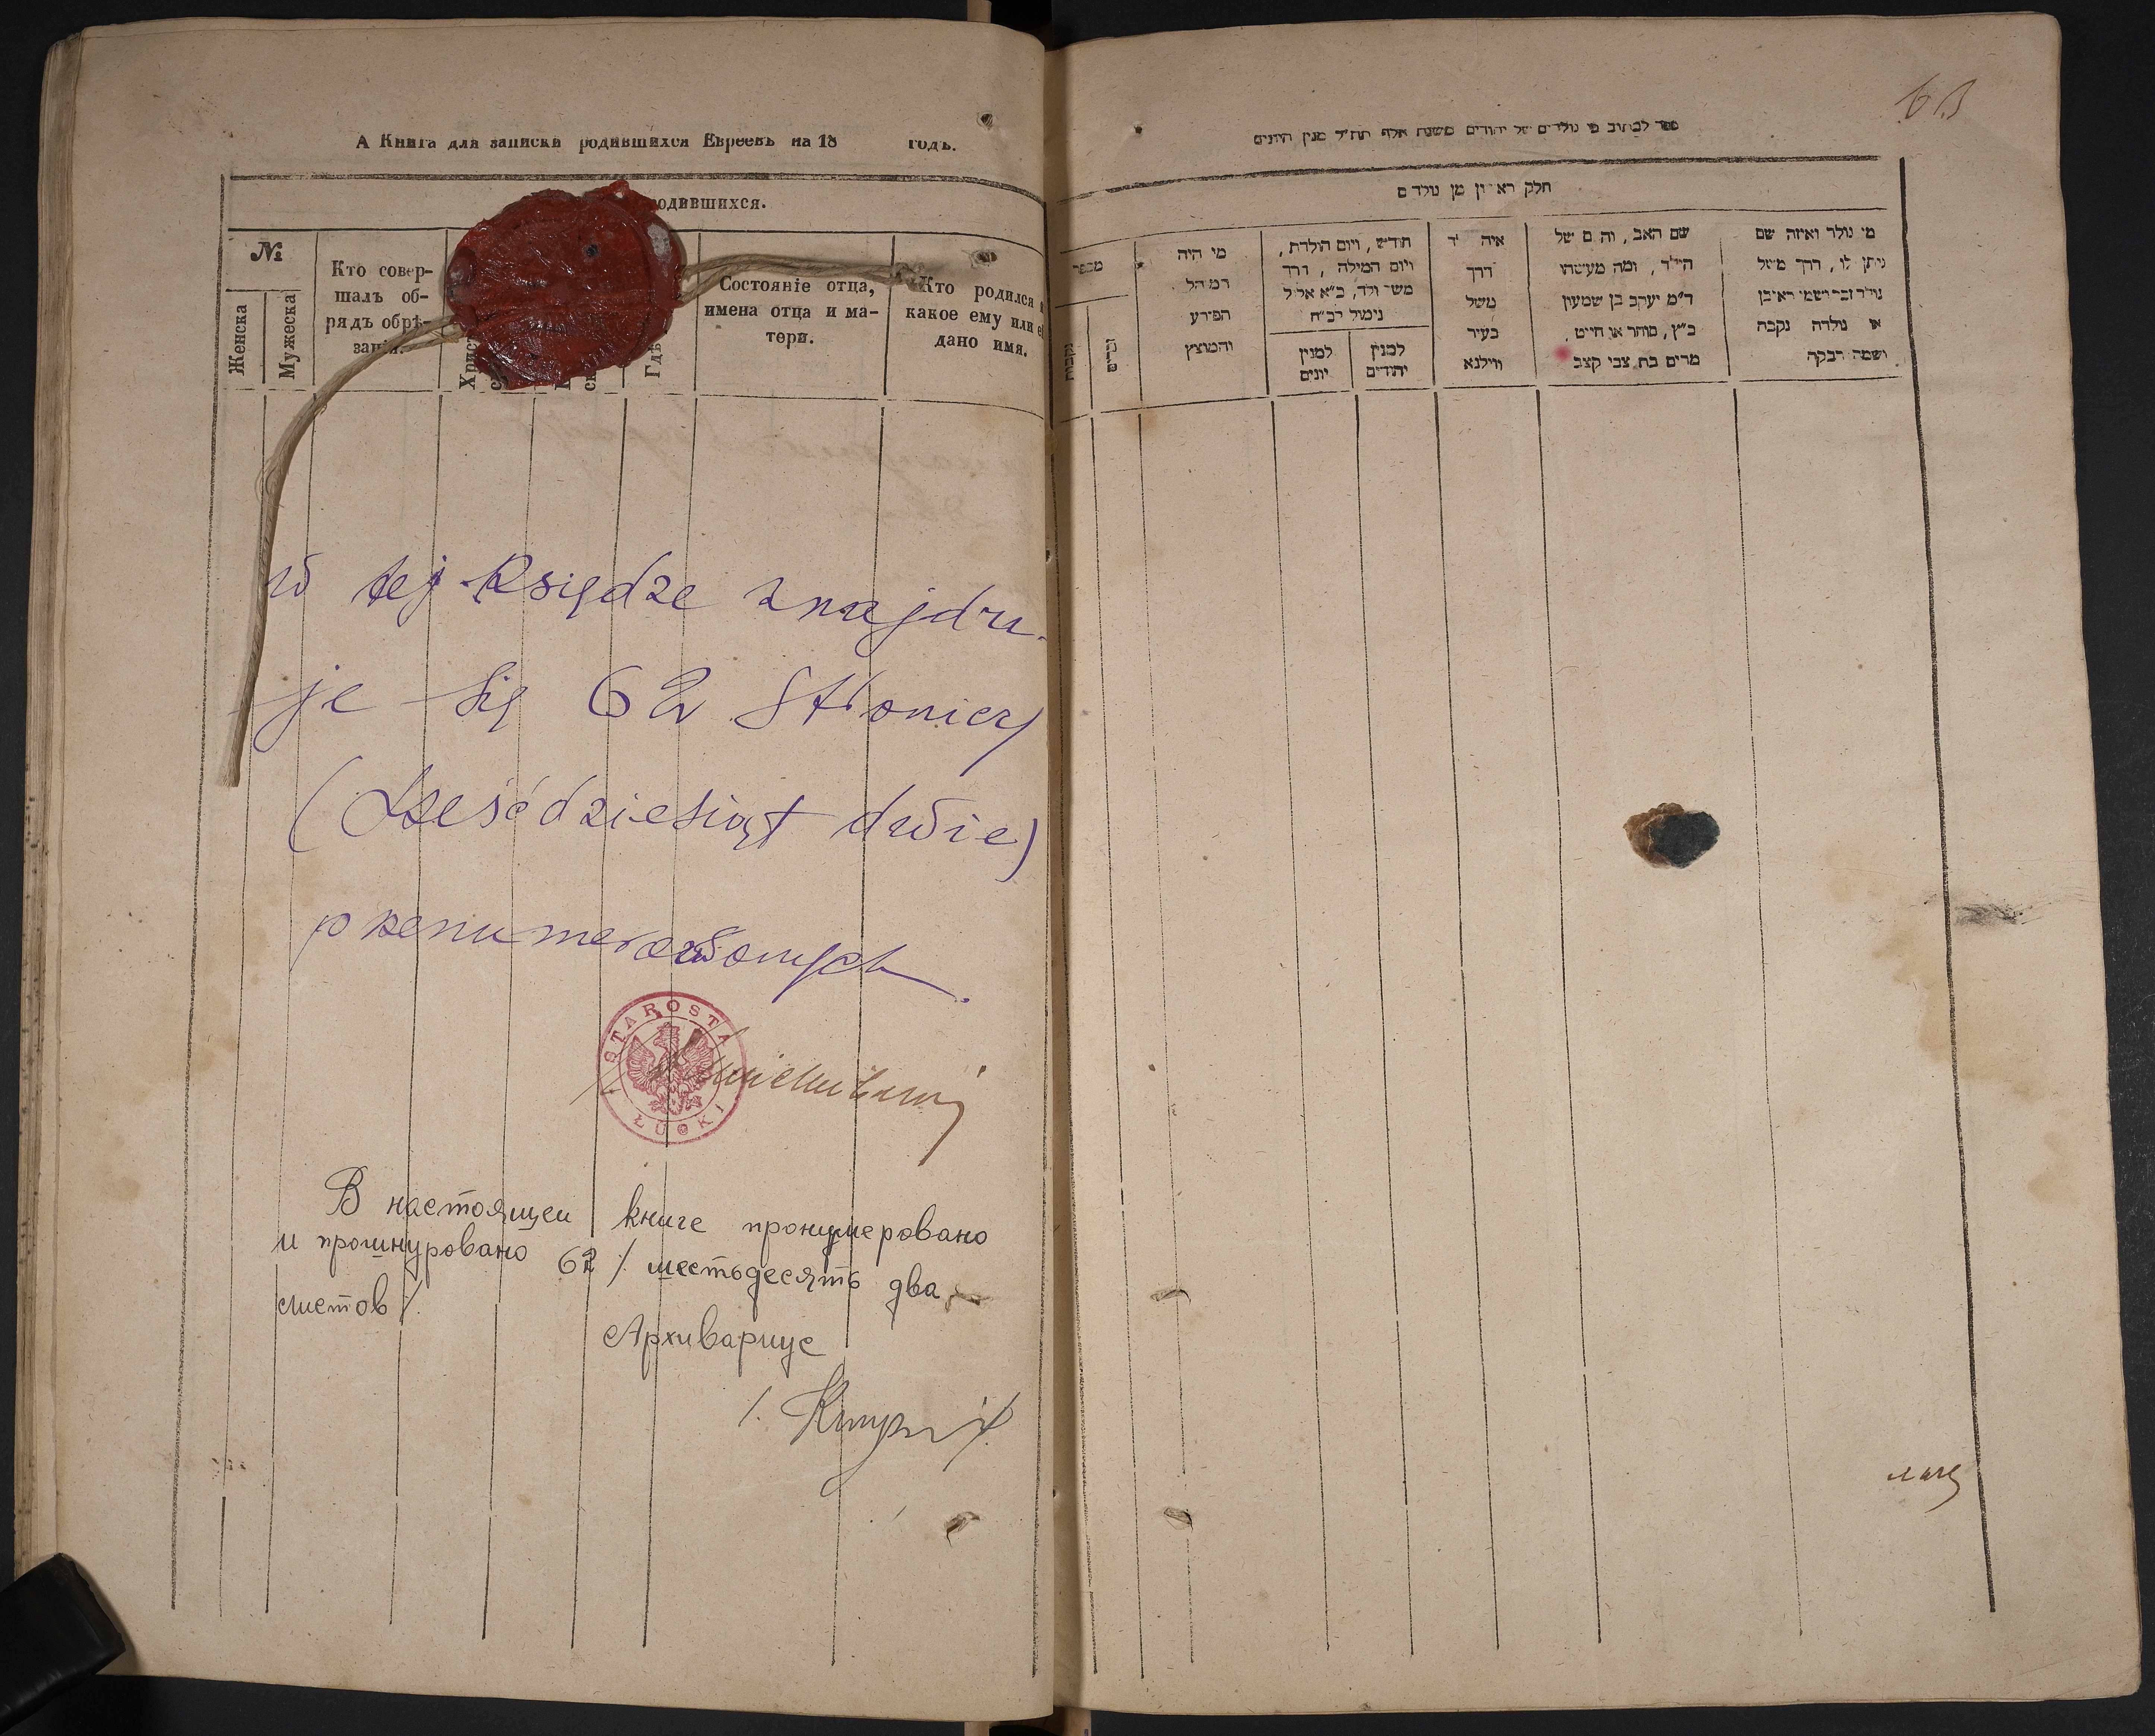 А Книга для записки родившихся Евреевъ на 18 годъ.
одившихся.
№
Женска
Мужеска
Кто совер-
шалъ об-
рядъ обрѣ-
занія.
Гдѣ
Состояніе отца,
имена отца и ма-
тери.
Кто родился
какое ему или
дано имя.
w tej Księdze znajdu-
je się 62 stronicy
(sześćdziesiąt dwie)
przenumerowanych.
STAROSTA
ŁUCKI
В настоящей книге пронумеровано
и прошнуровано 62 / шестьдесять два
листов /.
Архивариус
63
ספר לכתוב מי נולדים של יהודים משנת אלף תת״ל מנין היונים
חלק ראשון מן נולדים
מי נולד ואיזה שם
ניתן לו, דרך משל
נולד זכר ושמו ראובן
או נולדה נקבה
ושמה רבקה
שם האב, והאם של
הילד, ומה מעשהו
ר״מ יעקב בן שמעון
כ״ץ, סוחר או חייט,
מרים בת צבי קצב
איה
דרך
משל
בעיר
ווילנא
חודש, ויום הולדת,
ויום המילה, דרך
משל ולד, כ״א אלול
נימול כ״ח
למנין
יהודים
למנין
יונים
מי היה
המוהל
הפורע
והמוצץ
מספר
זכרים
נקבות